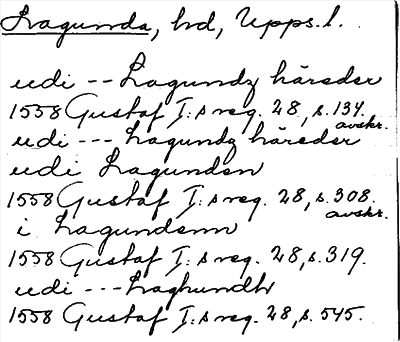 Lagunda, hd, Upps.l.
udi -- Lagundz häreder
1558 Gustaf I:s reg. 28, s. 134.
avskr.
udi --- Lagundz häreder
udi Lagunden
1558 Gustaf I:s reg. 28, s. 308.
avskr.
i Lagundenn
1558 Gustaf I:s reg. 28, s. 319.
udi --- Laghundh
1558 Gustaf I:s reg. 28, s. 545.